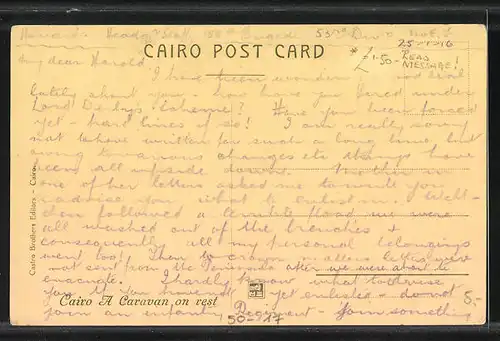 Headqrs Staff 158th Brigade 53rd Div. M.E.F.
CAIRO POST CARD
25-1-16
1-50- READ
MESSAGE!
My dear Harold,
I have been wondering
lately about you - how have you fared under
Lord Derby's Scheme? Have you been forced
yet - hard lines if so! I am really sorry
not to have written for such a long time, but
owing to various changes etc things have
been all upside down. Mother in
one of her letters asked me to write you
& advise you what to enlist in. Well -
then followed a terrible flood, we were
all washed out of the trenches &
consequently all my personal belongings
went too! Then to crown matters letters were
not sent from the Peninsula after we were about to
evacuate. I hardly know what to advise
you. If you haven't yet enlisted - do not
join an infantry Regiment - Join something
Castro Brothers Editors - Cairo
Cairo A Caravan on rest
50-217
5.-